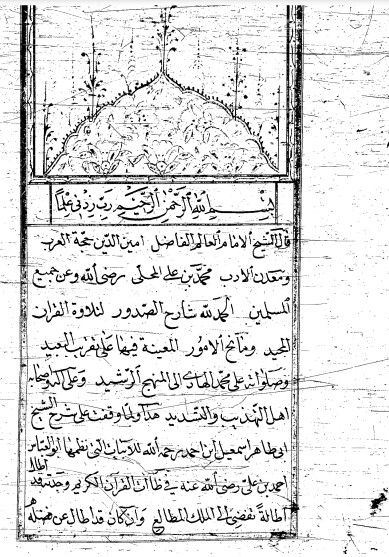 بسم الله الرحمن الرحيم رب زدني علما
قال الشيخ الامام العالم الفاضل امين الدين حجة العرب
ومعدن الادب محمد بن علي المحلي رضي الله وعن جميع
المسلمين الحمد لله شارح الصدور لتلاوة القران
المجيد وفاتح الامور المعينة فيها على تقرب العبيد
وصلواته على محمد الهادي الى المنهج الرشيد وعلى اله واصحابه
اهل التهذيب والتسديد هذا ولما وقفت على شرح الشيخ
ابي طاهر اسمعيل ابن احمد رحمه الله للابيات التي نظمها ابو العباس
احمد بن علي رضي الله عنه في ظاات القران الكريم وجدته قد اطال
اطالة تفضي الى الملل المطالع وان كان قد اطال عن فضله